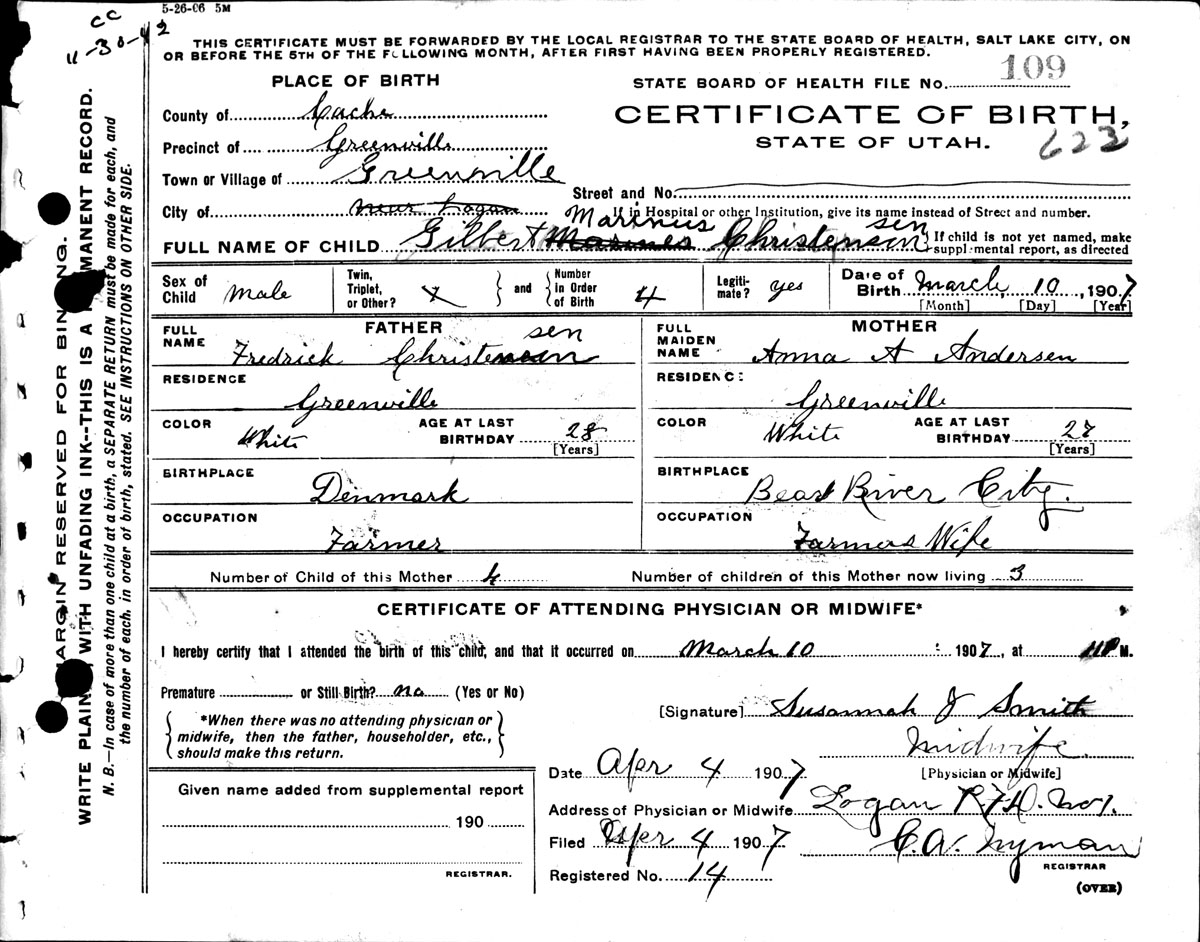 5-26-06 5M
CC
11-30-42
THIS CERTIFICATE MUST BE FORWARDED BY THE LOCAL REGISTRAR TO THE STATE BOARD OF HEALTH, SALT LAKE CITY, ON
OR BEFORE THE 5TH OF THE FOLLOWING MONTH, AFTER FIRST HAVING BEEN PROPERLY REGISTERED.
PLACE OF BIRTH
STATE BOARD OF HEALTH FILE No. 109
County of Cache
CERTIFICATE OF BIRTH,
STATE OF UTAH.
623
Precinct of Greenville
Town or Village of Greenville
Street and No.
City of near Logan
If in Hospital or other Institution, give its name instead of Street and number.
Marinus sen
FULL NAME OF CHILD Gilbert Christensen
If child is not yet named, make
supplemental report, as directed
Sex of Child Male
Twin, Triplet, or Other?
and
Number in Order of Birth 4
Legitimate? yes
Date of Birth March, 10, 1907
[Month] [Day] [Year]
FATHER
FULL NAME
sen
Fredrick Christensen
RESIDENCE
Greenville
COLOR White
AGE AT LAST BIRTHDAY 28
[Years]
BIRTHPLACE
Denmark
OCCUPATION
Farmer
MOTHER
FULL MAIDEN NAME
Anna A Andersen
RESIDENCE
Greenville
COLOR White
AGE AT LAST BIRTHDAY 27
[Years]
BIRTHPLACE
Bear River City.
OCCUPATION
Farmers Wife
Number of Child of this Mother 4
Number of children of this Mother now living 3
CERTIFICATE OF ATTENDING PHYSICIAN OR MIDWIFE*
I hereby certify that I attended the birth of this child, and that it occurred on March 10 1907, at 11 P M.
Premature or Still Birth? no (Yes or No)
*When there was no attending physician or
midwife, then the father, householder, etc.,
should make this return.
[Signature] Susannah J Smith
Midwife.
[Physician or Midwife]
Date Apr 4 1907
Given name added from supplemental report
190
REGISTRAR.
Address of Physician or Midwife Logan R.F.D. No 1.
Filed Apr 4 1907
C.A. Nyman
REGISTRAR
Registered No. 14
(OVER)
MARGIN RESERVED FOR BINDING.
WRITE PLAINLY WITH UNFADING INK--THIS IS A PERMANENT RECORD.
N. B.—In case of more than one child at a birth, a SEPARATE RETURN must be made for each, and
the number of each, in order of birth, stated. SEE INSTRUCTIONS ON OTHER SIDE.